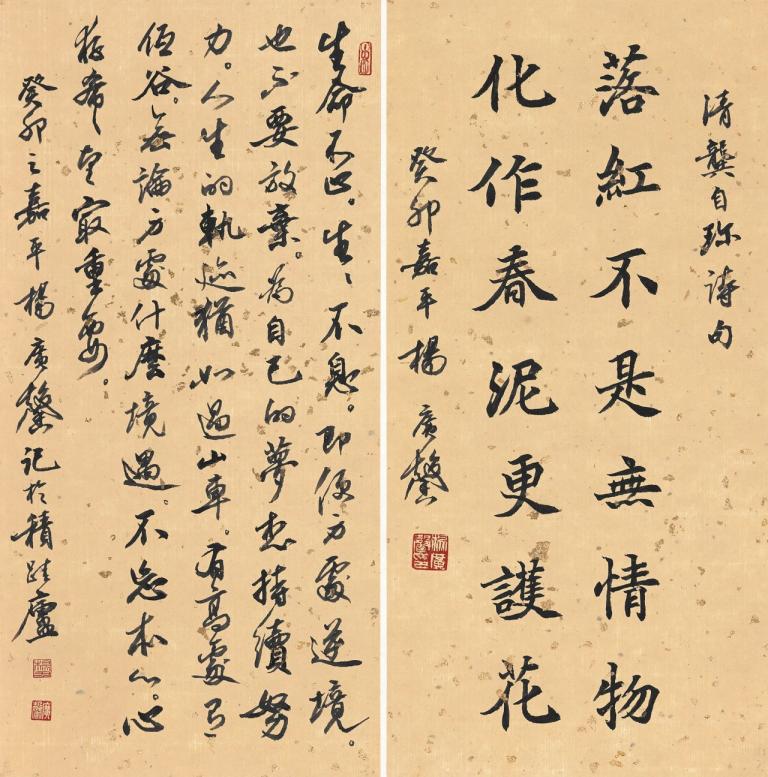 清龔自珍詩句
落紅不是無情物
化作春泥更護花
癸卯嘉平楊廣馨
生命不止。生〻不息。即便方處逆境。
也不要放棄。為自己的夢想持續努
力。人生的軌跡猶如過山車。有高處有
低谷。無論方處什麼境遇。不忘本心。心
希望最重要。
癸卯之嘉平楊廣馨記於積跬廬